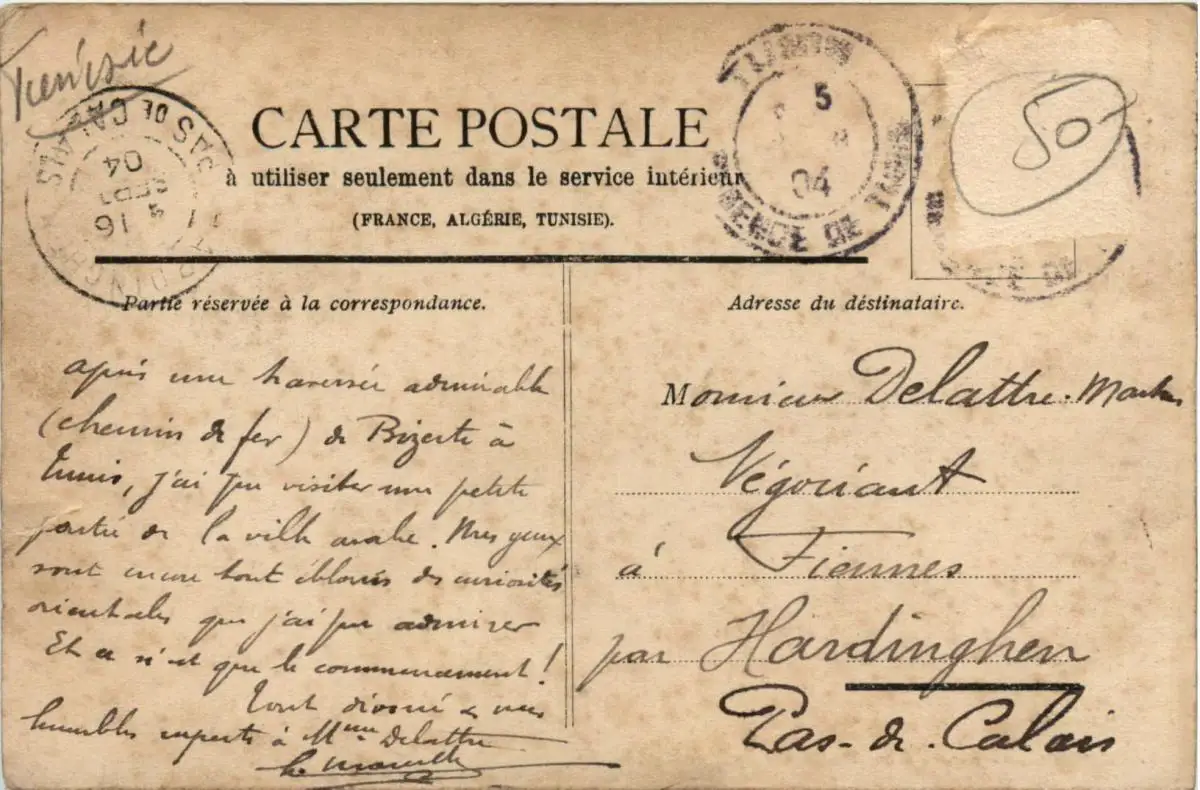 Tunisie
CARTE POSTALE
à utiliser seulement dans le service intérieur
(FRANCE, ALGÉRIE, TUNISIE).
PAS DE CALAIS
16
4
SEPT
04
HARDINGHEN
5
04
RÉGENCE DE TUNIS
50
DE
Partie réservée à la correspondance.
après une traversée admirable
(chemin de fer) de Bizerte à
Tunis, j'ai pu visiter une petite
partie de la ville arabe. Mes yeux
sont encore tout éblouis des curiosités
orientales que j'ai pu admirer
Et ce n'est que le commencement!
Tout dévoué à vous
humbles respects à Mme Delattre
Adresse du déstinataire.
Monsieur Delattre-
Négociant
à Fiennes
par Hardinghen
Pas-de-Calais